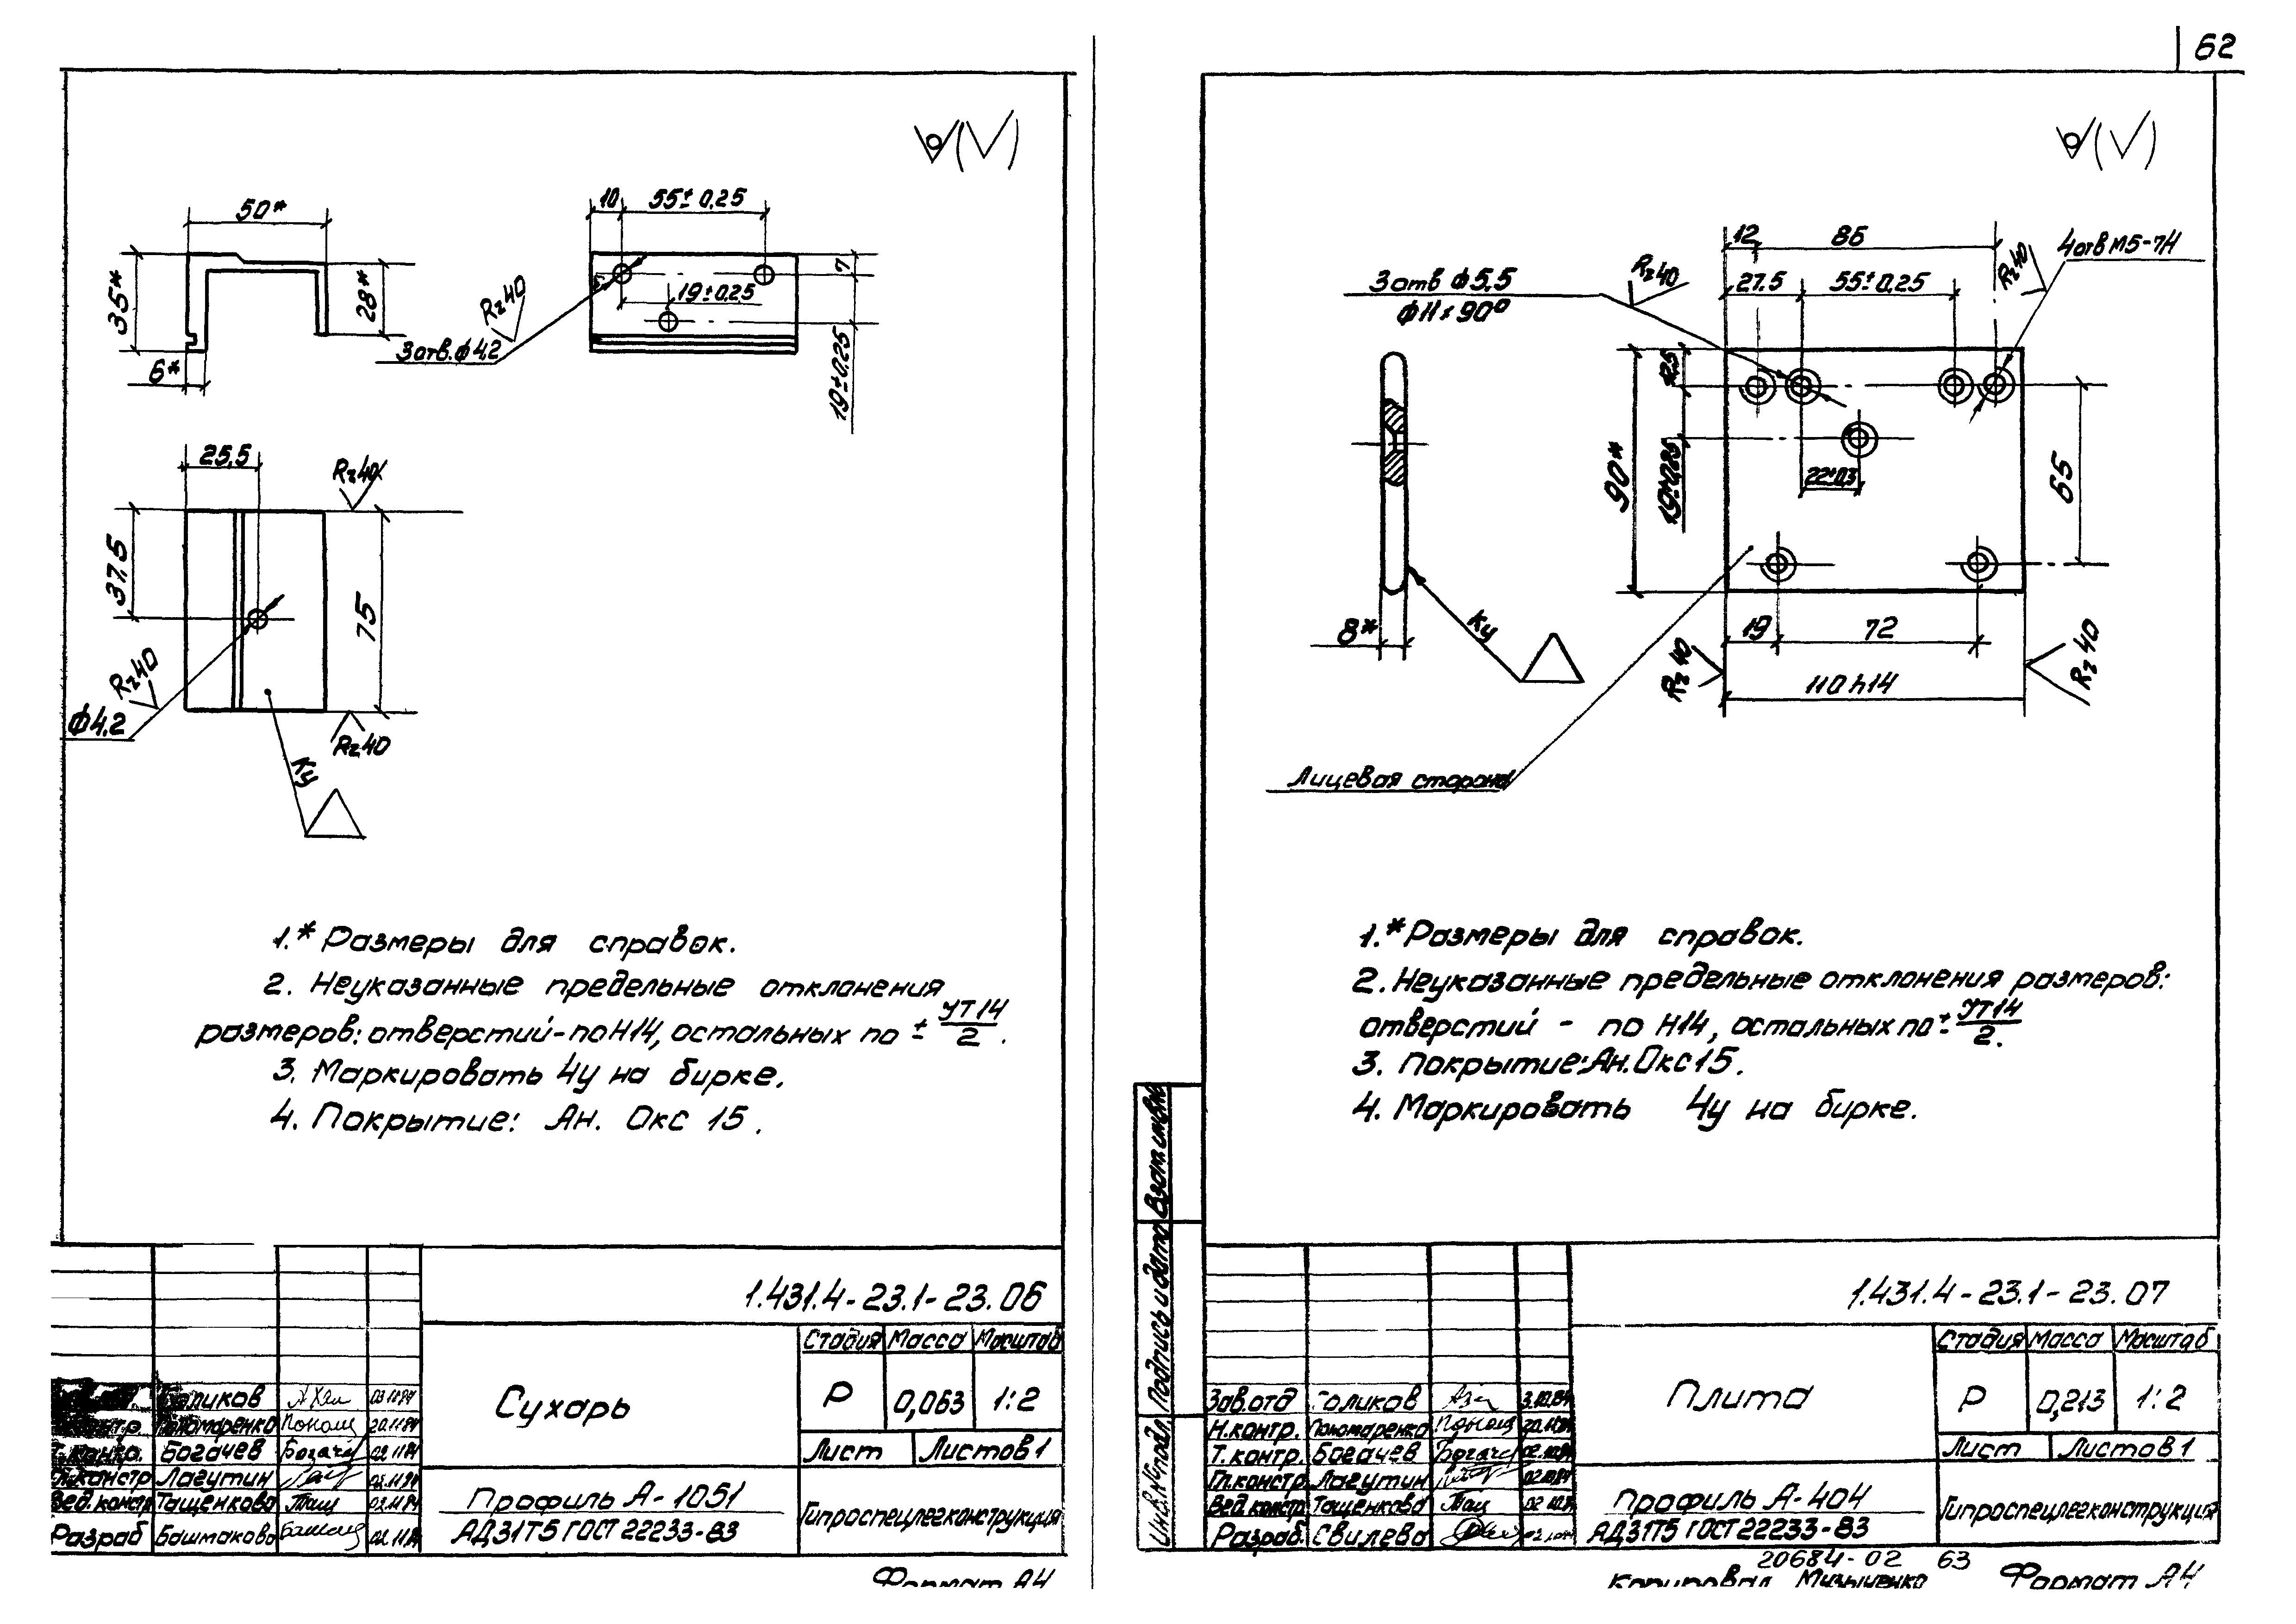 62
50*
35*
28*
6*
10
55±0,25
7
19±0,25
19±0,25
3отв.ф4,2
Rz40
25,5
Rz40
37,5
75
Rz40
ф4,2
Rz40
Ку
1.* Размеры для справок.
2. Неуказанные предельные отклонения
размеров: отверстий-по Н14, остальных по ± УТ14/2.
3. Маркировать Чу на бирке.
4. Покрытие: Ан. Окс 15.
1.431.4-23.1-23.06
Сухарь
Стадия Масса Масштаб
Р 0,063 1:2
Лист Листов 1
Профиль А-1051
АД31Т5 ГОСТ 22233-83
Гипроспецлегконструкция
Голиков
Пономаренко 20.11.84
Т.контр. Богачев 02.11.84
Гл.констр Лагутин 02.11.84
Вед.констр Тащенкова 02.11.84
Разраб Башмакова 02.11.84
Формат А4
12
86
4 отв М5-7Н
3 отв ф5,5
ф11х90°
Rz40
27,5
55±0,25
Rz40
12,5
90*
19±0,25
22±0,3
65
8*
Ку
19
72
Rz40
110 h14
Rz40
Лицевая сторона
1.* Размеры для справок.
2. Неуказанные предельные отклонения размеров:
отверстий - по Н14, остальных по ± УТ14/2.
3. Покрытие: Ан.Окс 15.
4. Маркировать Чу на бирке.
Взам. инв.№
Подпись и дата
Инв.№ подл.
1.431.4-23.1-23.07
Плита
Стадия Масса Масштаб
Р 0,213 1:2
Лист Листов 1
Профиль А-404
АД31Т5 ГОСТ 22233-83
Гипроспецлегконструкция
Зав.отд Голиков
Н.контр. Пономаренко
Т.контр. Богачев
Гл.констр. Лагутин
Вед.констр. Тащенкова
Разраб. Свилева
20684-02 63
Копировал Формат А4